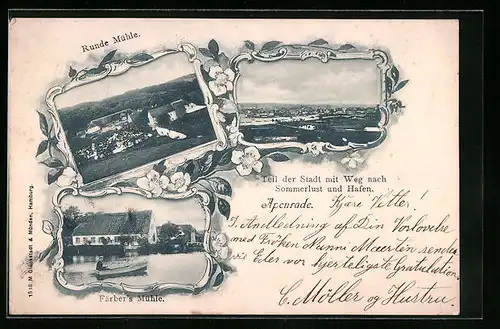 Runde Mühle.
Teil der Stadt mit Weg nach
Sommerlust und Hafen.
Apenrade.
Kjære Vetter!
I Andledning af Din Vorlovelse
med Frøken Nanni Maerten sender
vi Eder vor hjerteligste Gratulation.
C. Möller og Hustru.
Färber's Mühle.
1518 M Glückstadt & Münden, Hamburg.